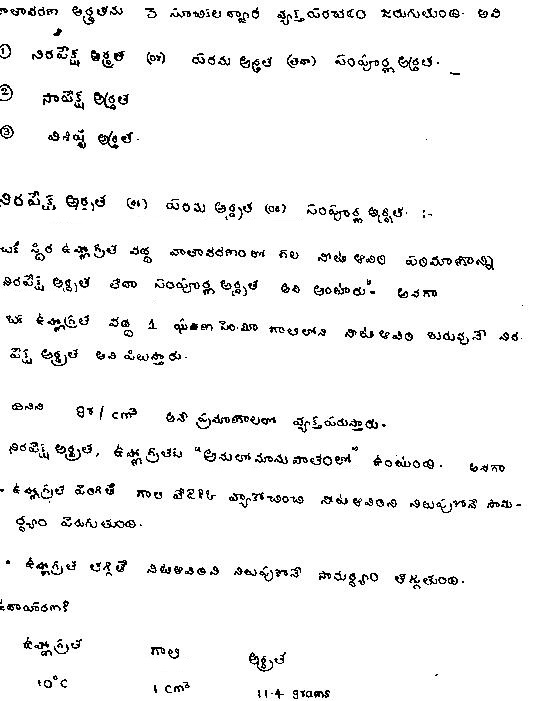 వాతావరణ ఆర్ద్రతను 3 సూచికల ద్వారా వ్యక్తపరచడం జరుగుతుంది. అవి
① నిరపేక్ష ఆర్ద్రత (or) పరమ ఆర్ద్రత (లేదా) సంపూర్ణ ఆర్ద్రత.
② సాపేక్ష ఆర్ద్రత
③ విశిష్ట ఆర్ద్రత.
నిరపేక్ష ఆర్ద్రత (or) పరమ ఆర్ద్రత (or) సంపూర్ణ ఆర్ద్రత. :-
ఒక స్థిర ఉష్ణోగ్రత వద్ద వాతావరణంలో గల నీటి ఆవిరి పరిమాణాన్ని
నిరపేక్ష ఆర్ద్రత లేదా సంపూర్ణ ఆర్ద్రత అని అంటారు. అనగా
ఒక ఉష్ణోగ్రత వద్ద 1 ఘనపు సెం.మీ గాలిలోని నీటి ఆవిరి బరువునే నిర
పేక్ష ఆర్ద్రత అని పిలుస్తారు.
దీనిని gr/cm³ అనే ప్రమాణాలలో వ్యక్తపరుస్తారు.
నిరపేక్ష ఆర్ద్రత, ఉష్ణోగ్రతకు "అనులోమానుపాతంలో" ఉంటుంది. అనగా
• ఉష్ణోగ్రత పెరిగితే గాలి వ్యాకోచించి నీటి ఆవిరిని నిలుపుకొనే సామ-
ర్థ్యం పెరుగుతుంది.
• ఉష్ణోగ్రత తగ్గితే నీటిఆవిరిని నిలుపుకొనే సామర్థ్యం తగ్గుతుంది.
ఉదాహరణకి
ఉష్ణోగ్రత గాలి ఆర్ద్రత
10°C 1 cm³ 11.4 grams